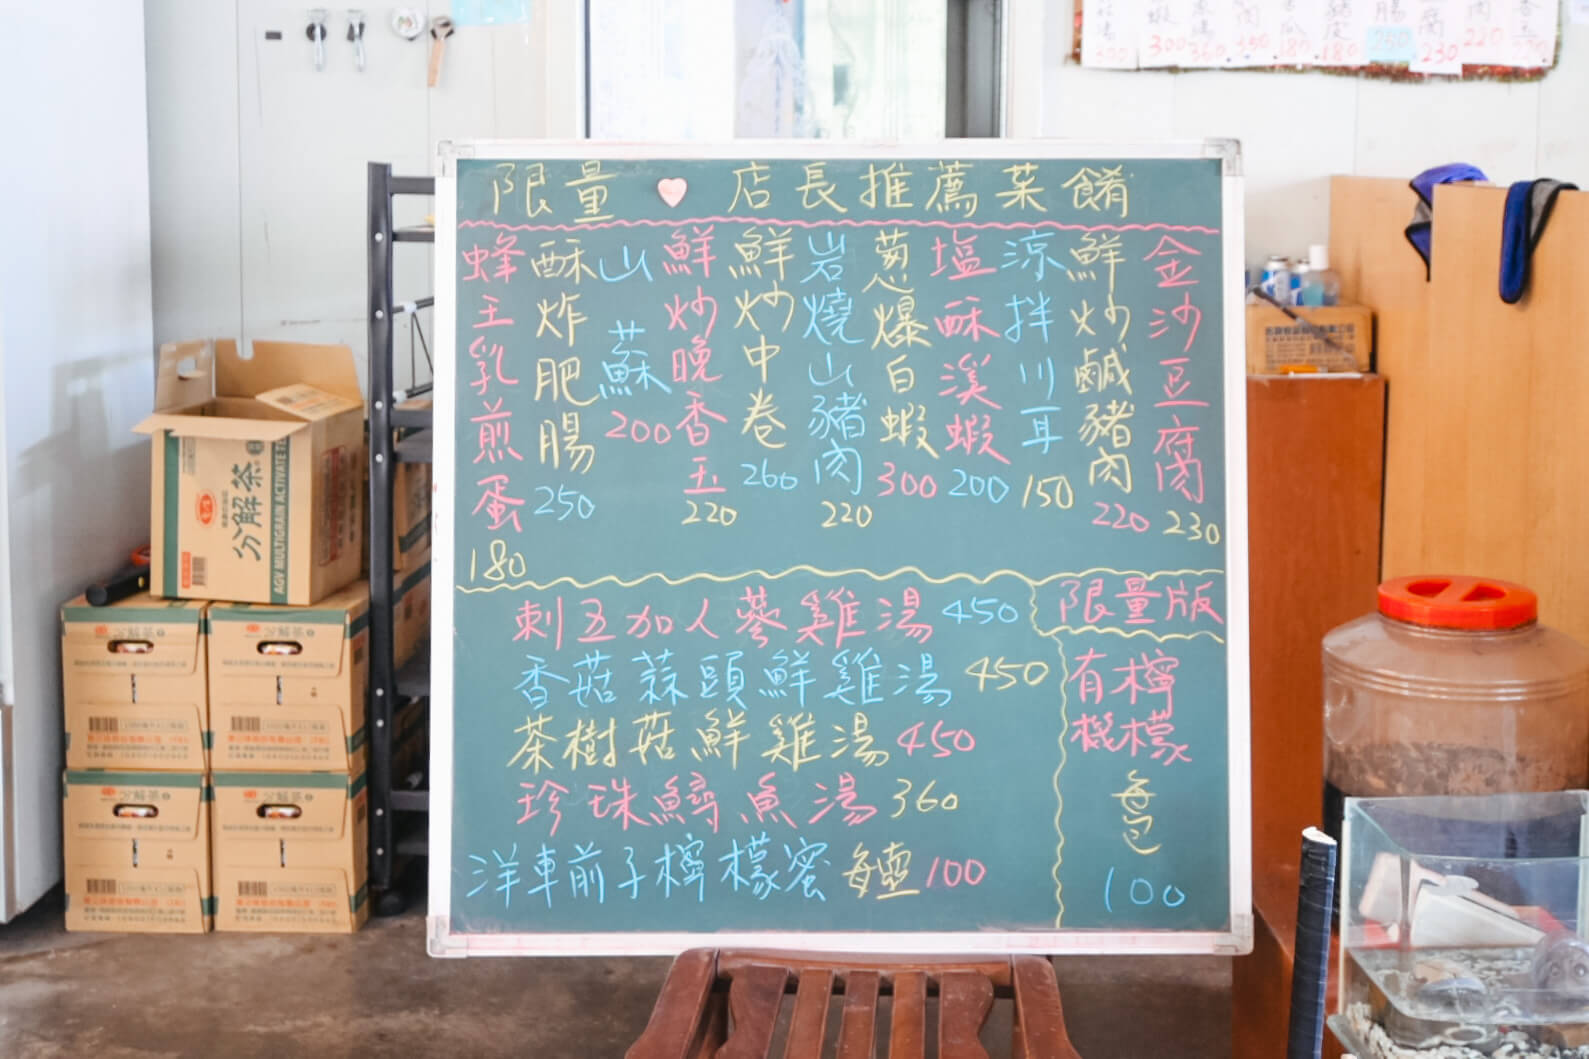 限量 店長推薦菜餚
金沙豆腐 230
鮮炒鹹豬肉 220
涼拌川耳 150
塩酥溪蝦 200
葱爆白蝦 300
岩燒山豬肉 220
鮮炒中卷 260
鮮炒晚香玉 220
山蘇 200
酥炸肥腸 250
蜂王乳煎蛋 180
刺五加人蔘雞湯 450
香菇蒜頭鮮雞湯 450
茶樹菇鮮雞湯 450
珍珠鱘魚湯 360
洋車前子檸檬蜜 每壺100
限量版
有機
檸檬
每包
100
分解茶
AGV MULTIGRAIN ACTIVATE TE
分解茶
分解茶
分解茶
分解茶
300
300
360
350
180
180
250
230
220